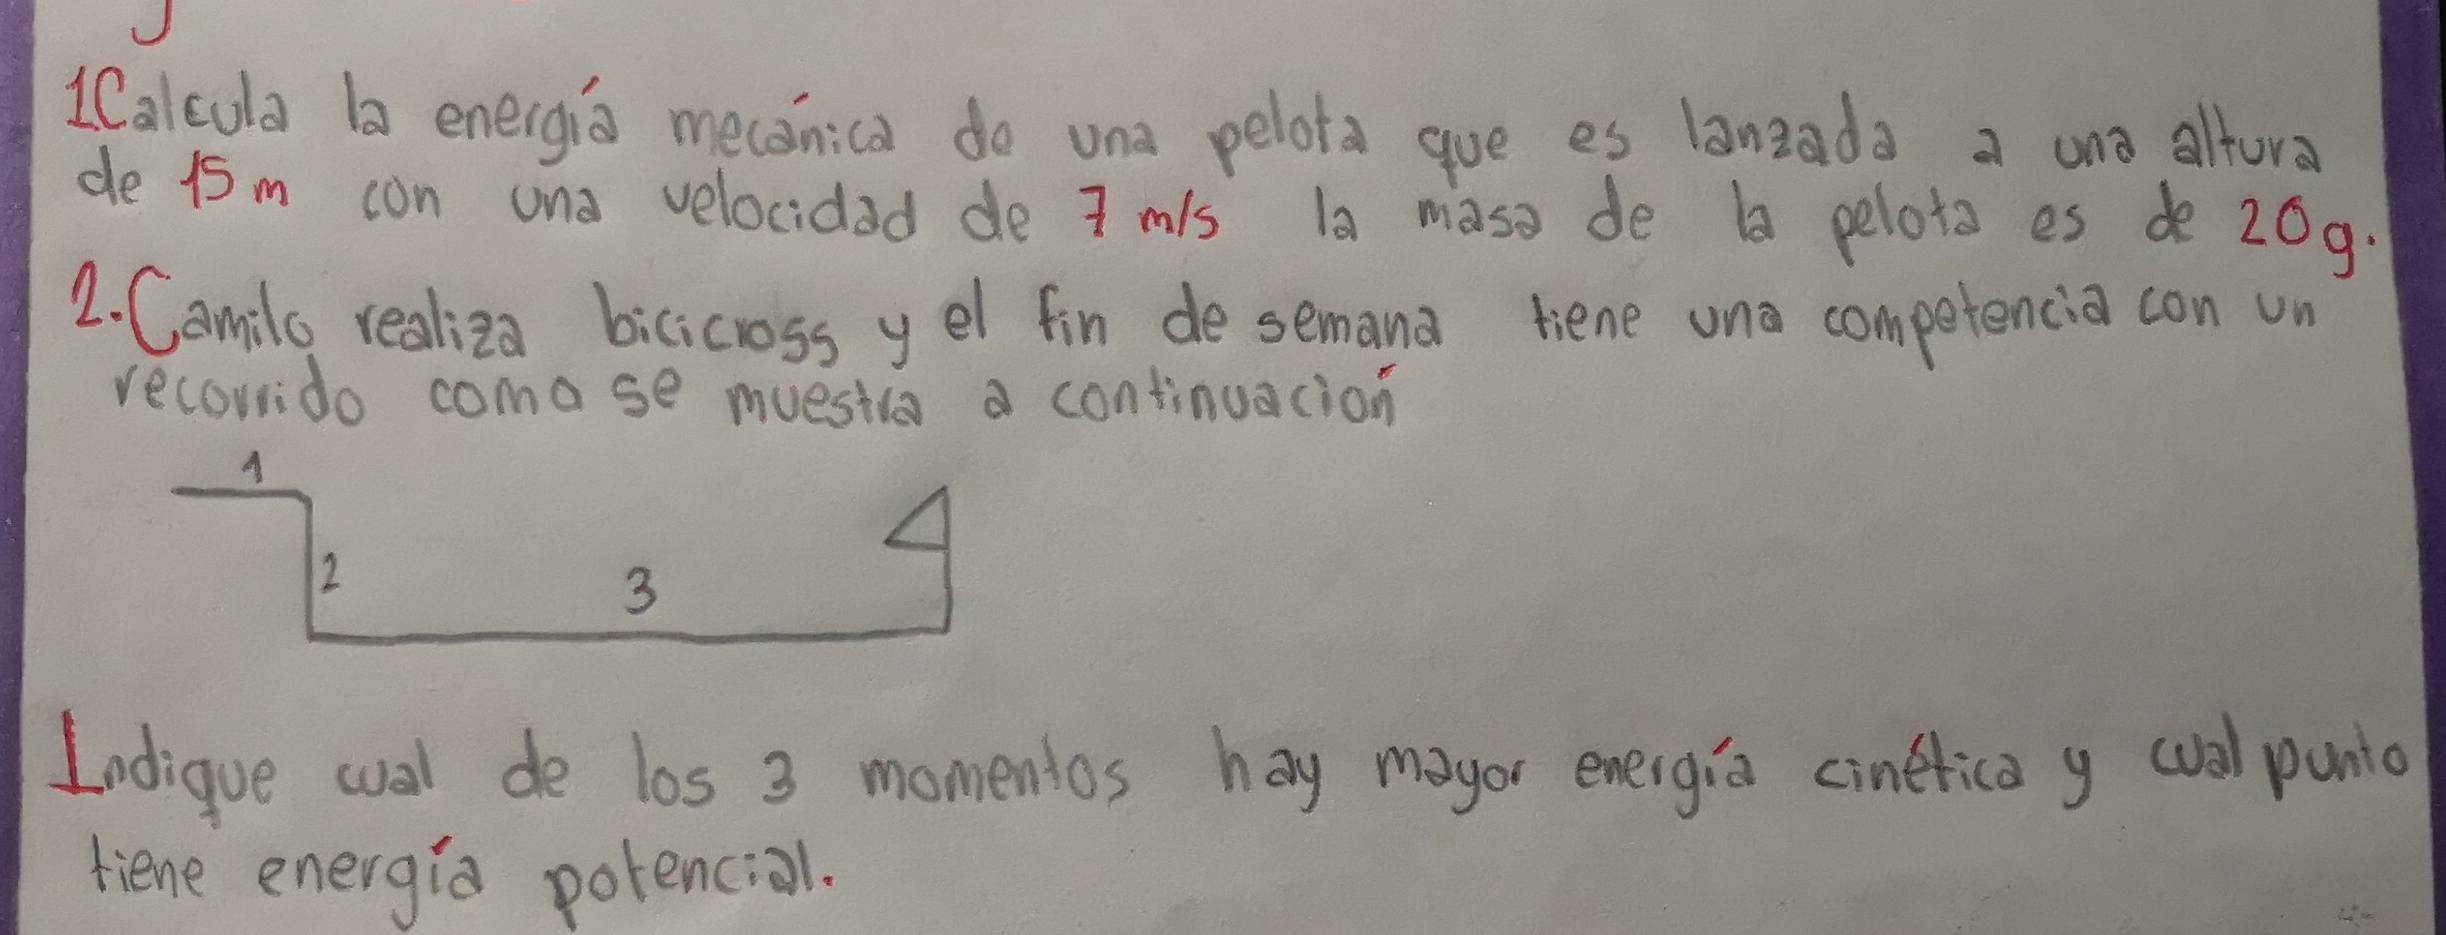 1.Calcula la energía mecánica de una pelota que es lanzada a una altura
de 15 m con una velocidad de 7 m/s la masa de la pelota es de 20g.
2.Camilo realiza bicicross y el fin de semana tiene una competencia con un
recorrido como se muestra a continuación
1
2
3
Indique cual de los 3 momentos hay mayor energía cinética y cual punto
tiene energía potencial.